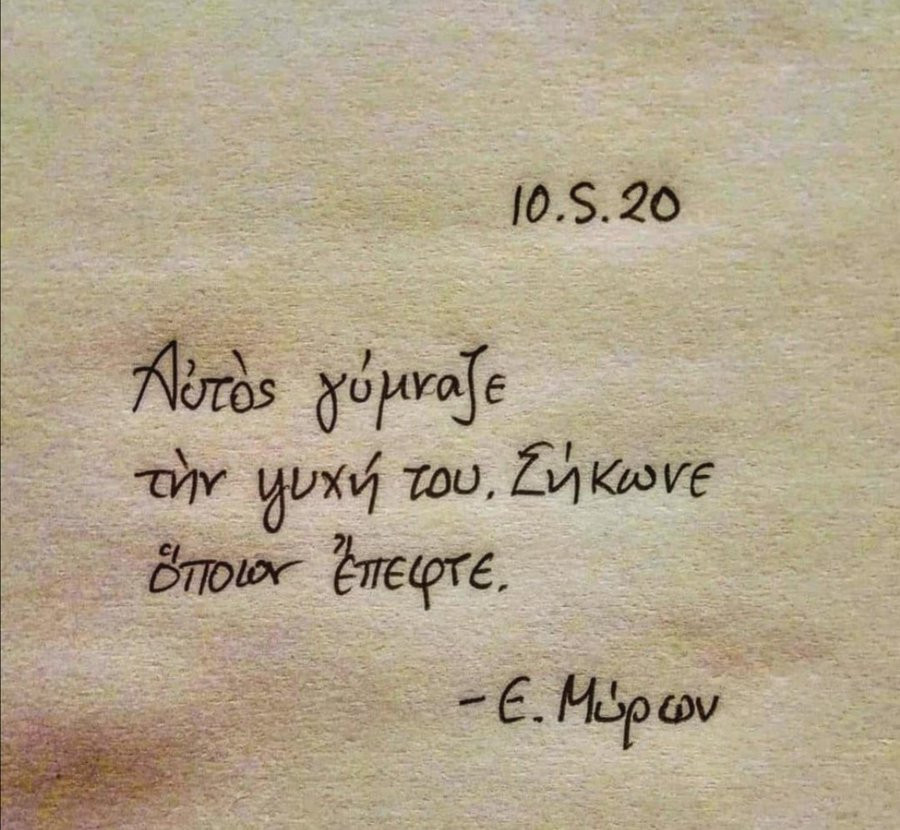 10.5.20
Αὐτὸς γύμναζε
τὴν ψυχή του. Σήκωνε
ὅποιον ἔπεφτε.
- Ε. Μύρων